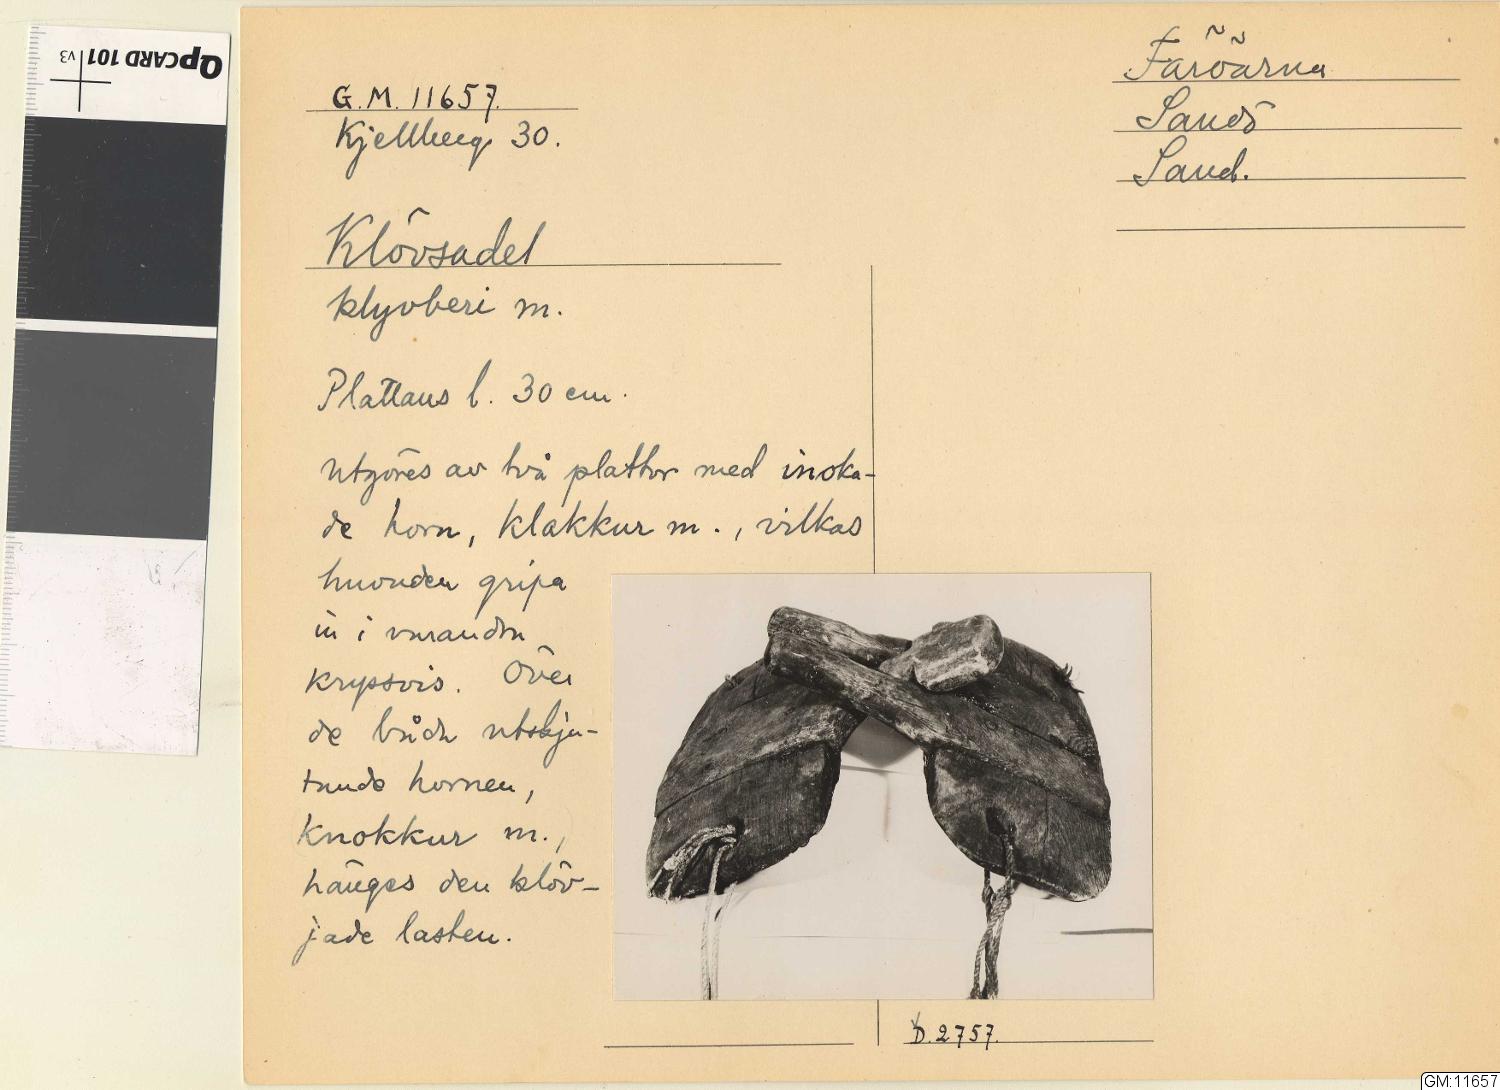 QPCARD 101 v3
G.M. 11657.
Kjellberg 30.
Färöarna
Sandö
Sand.
Klövsadel
klyvberi m.
Plattans l. 30 cm.
Utgöres av två plattor med inoka-
de horn, klakkur m., vilkas
huvuden gripa
in i varandra
kryssvis. Över
de båda utskju-
tande hornen,
knokkur m.,
hänges den klöv-
jade lasten.
D.2757.
GM:11657